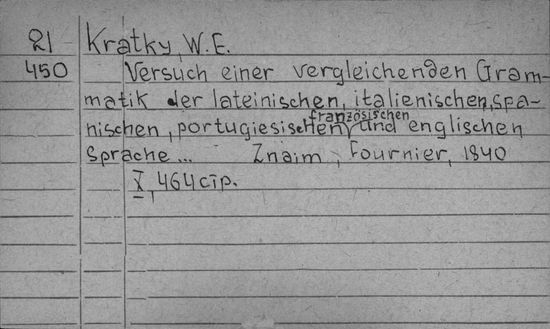 21 Kratky, W.E.
450 Versuch einer vergleichenden Gram-
matik der lateinischen, italienischen, spa-
nischen, portugiesischen, französischen und englischen
Sprache... Znaim, Fournier, 1840
X, 464 стр.